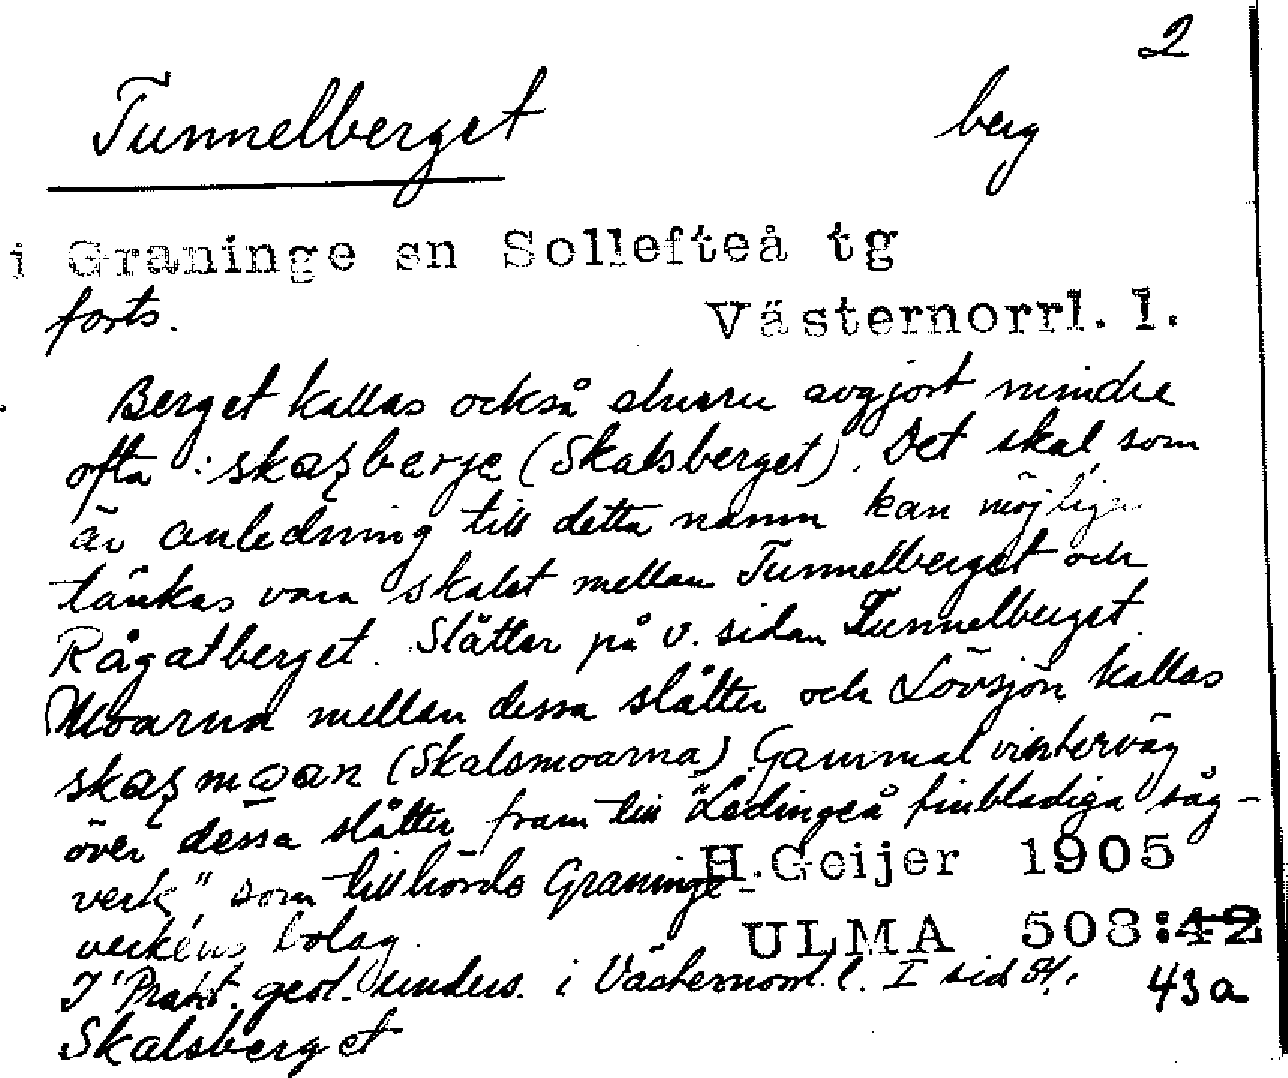 2
Tunnelberget berg
i Graninge sn Sollefteå tg
forts. Västernorrl. l.
Berget kallas också ehuru avgjort mindre
ofta: skaʂbærje (Skalsberget). Det skal, som
är anledning till detta namn kan möjligen
tänkas vara skalet mellan Tunnelberget och
Rågatberget. Slåtter på v. sidan Tunnelberget.
Moarna mellan dessa slåtter och Lövsjön kallas
skaʂmoan (Skalsmoarna) Gammal vinterväg
över dessa slåtter fram till "Ledingeå finbladiga såg-
verk" som tillhörde Graninge-
verkens bolag.
H. Geijer 1905
ULMA 508:42
43a
I "Prakt. geol. unders. i Västernorrl. l. I sid
Skalsberget